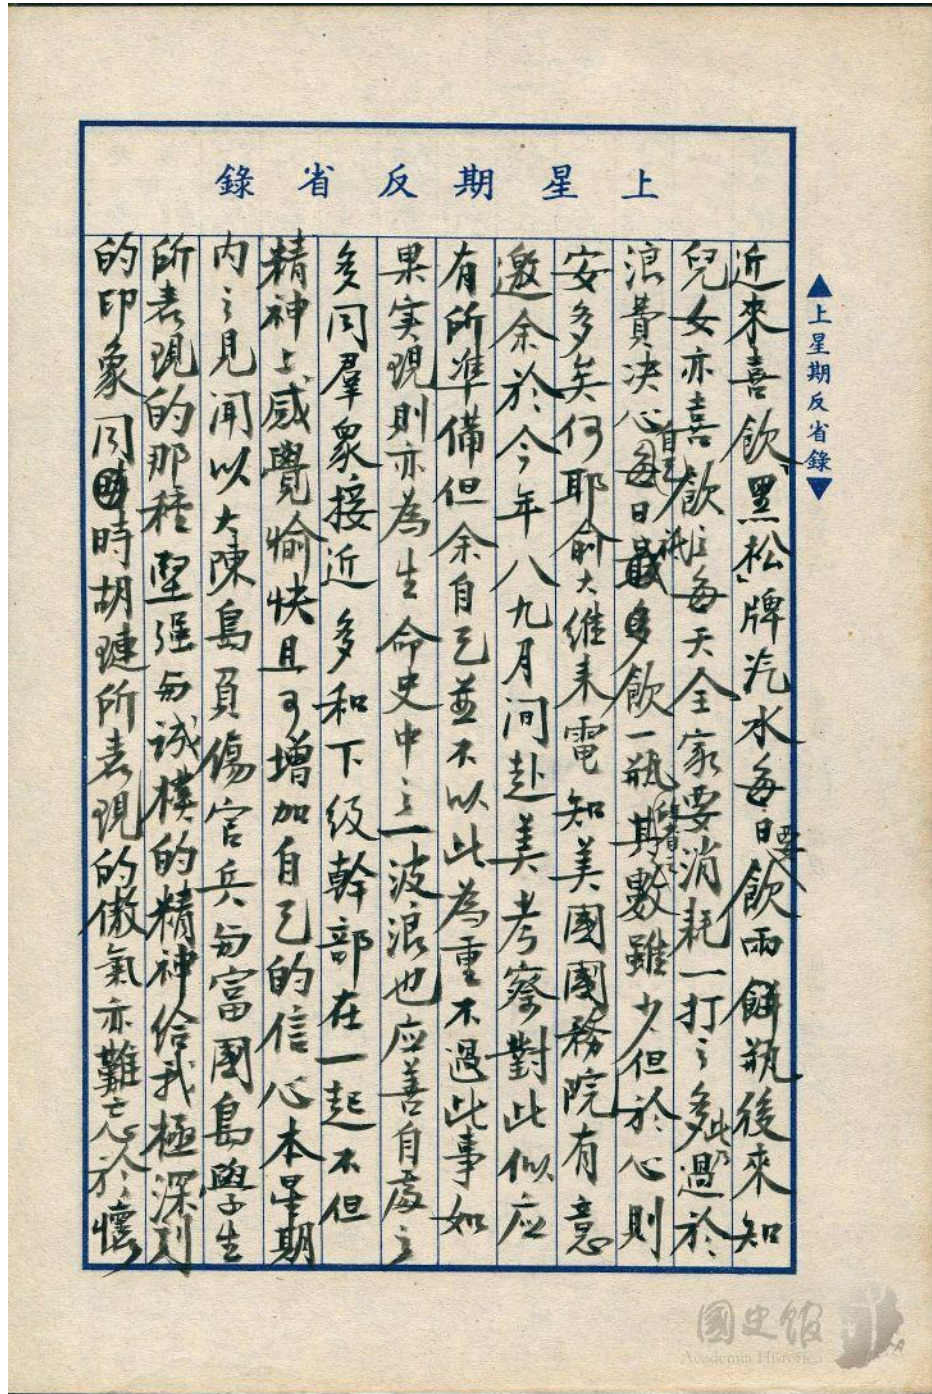 上星期反省錄
▲上星期反省錄▼
近來喜飲「黑松」牌汽水每日要飲兩餅瓶後來知
兒女亦喜歡飲每天全家要消耗一打之多此乃過於
浪費決心自己每日最多飲一瓶其數雖少但於心則
安多矣何耶俞大維來電知美國國務院有意
邀余於今年八九月間赴美考察對此似应
有所準備但余自己並不以此為重不過此事如
果实現則亦為生命史中之一波浪也应善自處之
多同羣衆接近多和下级幹部在一起不但
精神上感覺愉快且可增加自己的信心本星期
內之見聞以大陳島負傷官兵与富國島學生
所表現的那種堅强与诚樸的精神给我極深刻
的印象同時胡璉所表現的傲氣亦難忘於懷
國史館
Academia Historica